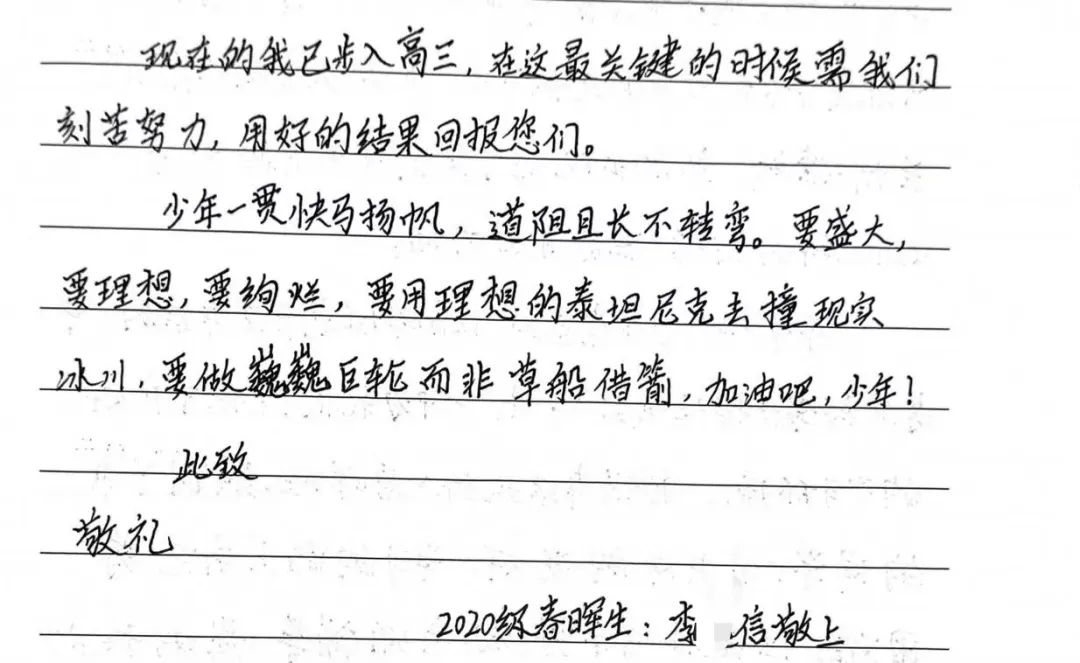 现在的我已步入高三，在这最关键的时候需我们
刻苦努力，用好的结果回报您们。
少年一贯快马扬帆，道阻且长不转弯。要盛大，
要理想，要绚烂，要用理想的泰坦尼克去撞现实
冰川，要做巍巍巨轮而非草船借箭，加油吧，少年！
此致
敬礼
2020级春晖生：李 信敬上